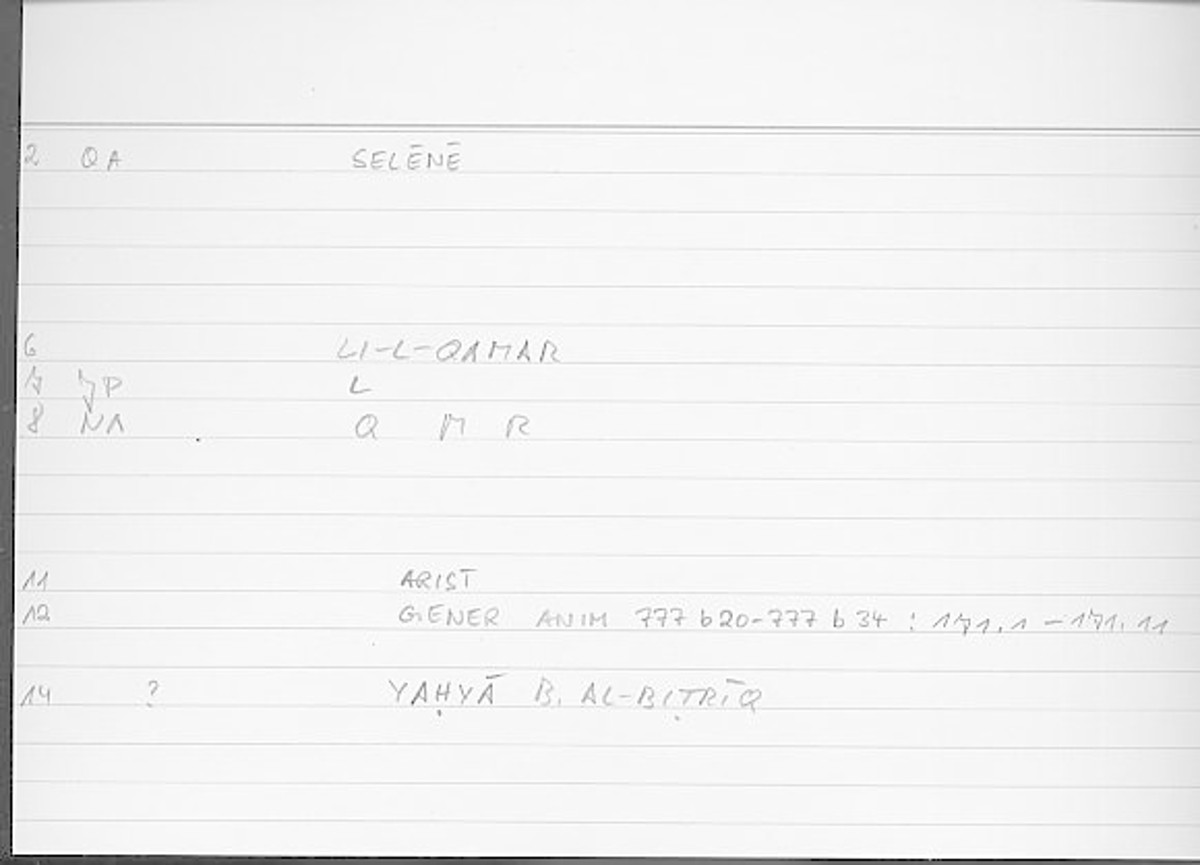 2 QA SELĒNĒ
6 LI-L-QAMAR
7 JP L
8 NA Q M R
11 ARIST
12 GENER ANIM 777 b 20-777 b 34 : 171.1 - 171.11
14 ? YAḤYĀ B. AL-BIṬRĪQ